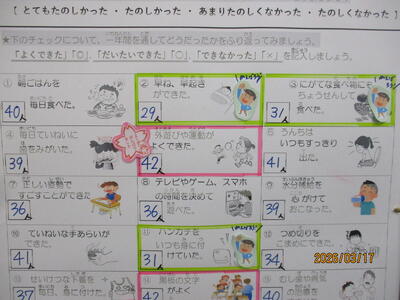 [ とてもたのしかった ・ たのしかった ・ あまりたのしくなかった ・ たのしくなかった ]
★下のチェックについて、一年間を通してどうだったかをふり返ってみましょう。
「よくできた」「◎」、「だいたいできた」「○」、「できなかった」「×」を記入しましょう。
① 朝ごはんを
毎日食べた。
40人
② 早ね、早起き
ができた。
29人
③ にがてな食べ物にも
ちょうせんして
食べた。
31人
④ 毎日ていねいに
歯をみがいた。
39人
外遊びや運動が
よくできた。
42人
⑥ うんちは
いつもすっきり
出た。
41人
⑦ 正しい姿勢で
すごすことができた
36人
⑧ テレビやゲーム、スマホ
の時間を決めて
遊べた。
36人
⑨ 水分補給を
心がけて
おこなった。
39人
⑩ ていねいな手あらいが
できた。
41人
⑪ ハンカチを
いつも身に付
けていた。
31人
⑫ つめ切りを
こまめにできた。
34人
2026/03/17
⑬ せいけつな下着を
毎日、身に付けた
37
⑭ 黒板の文字
がよく
42